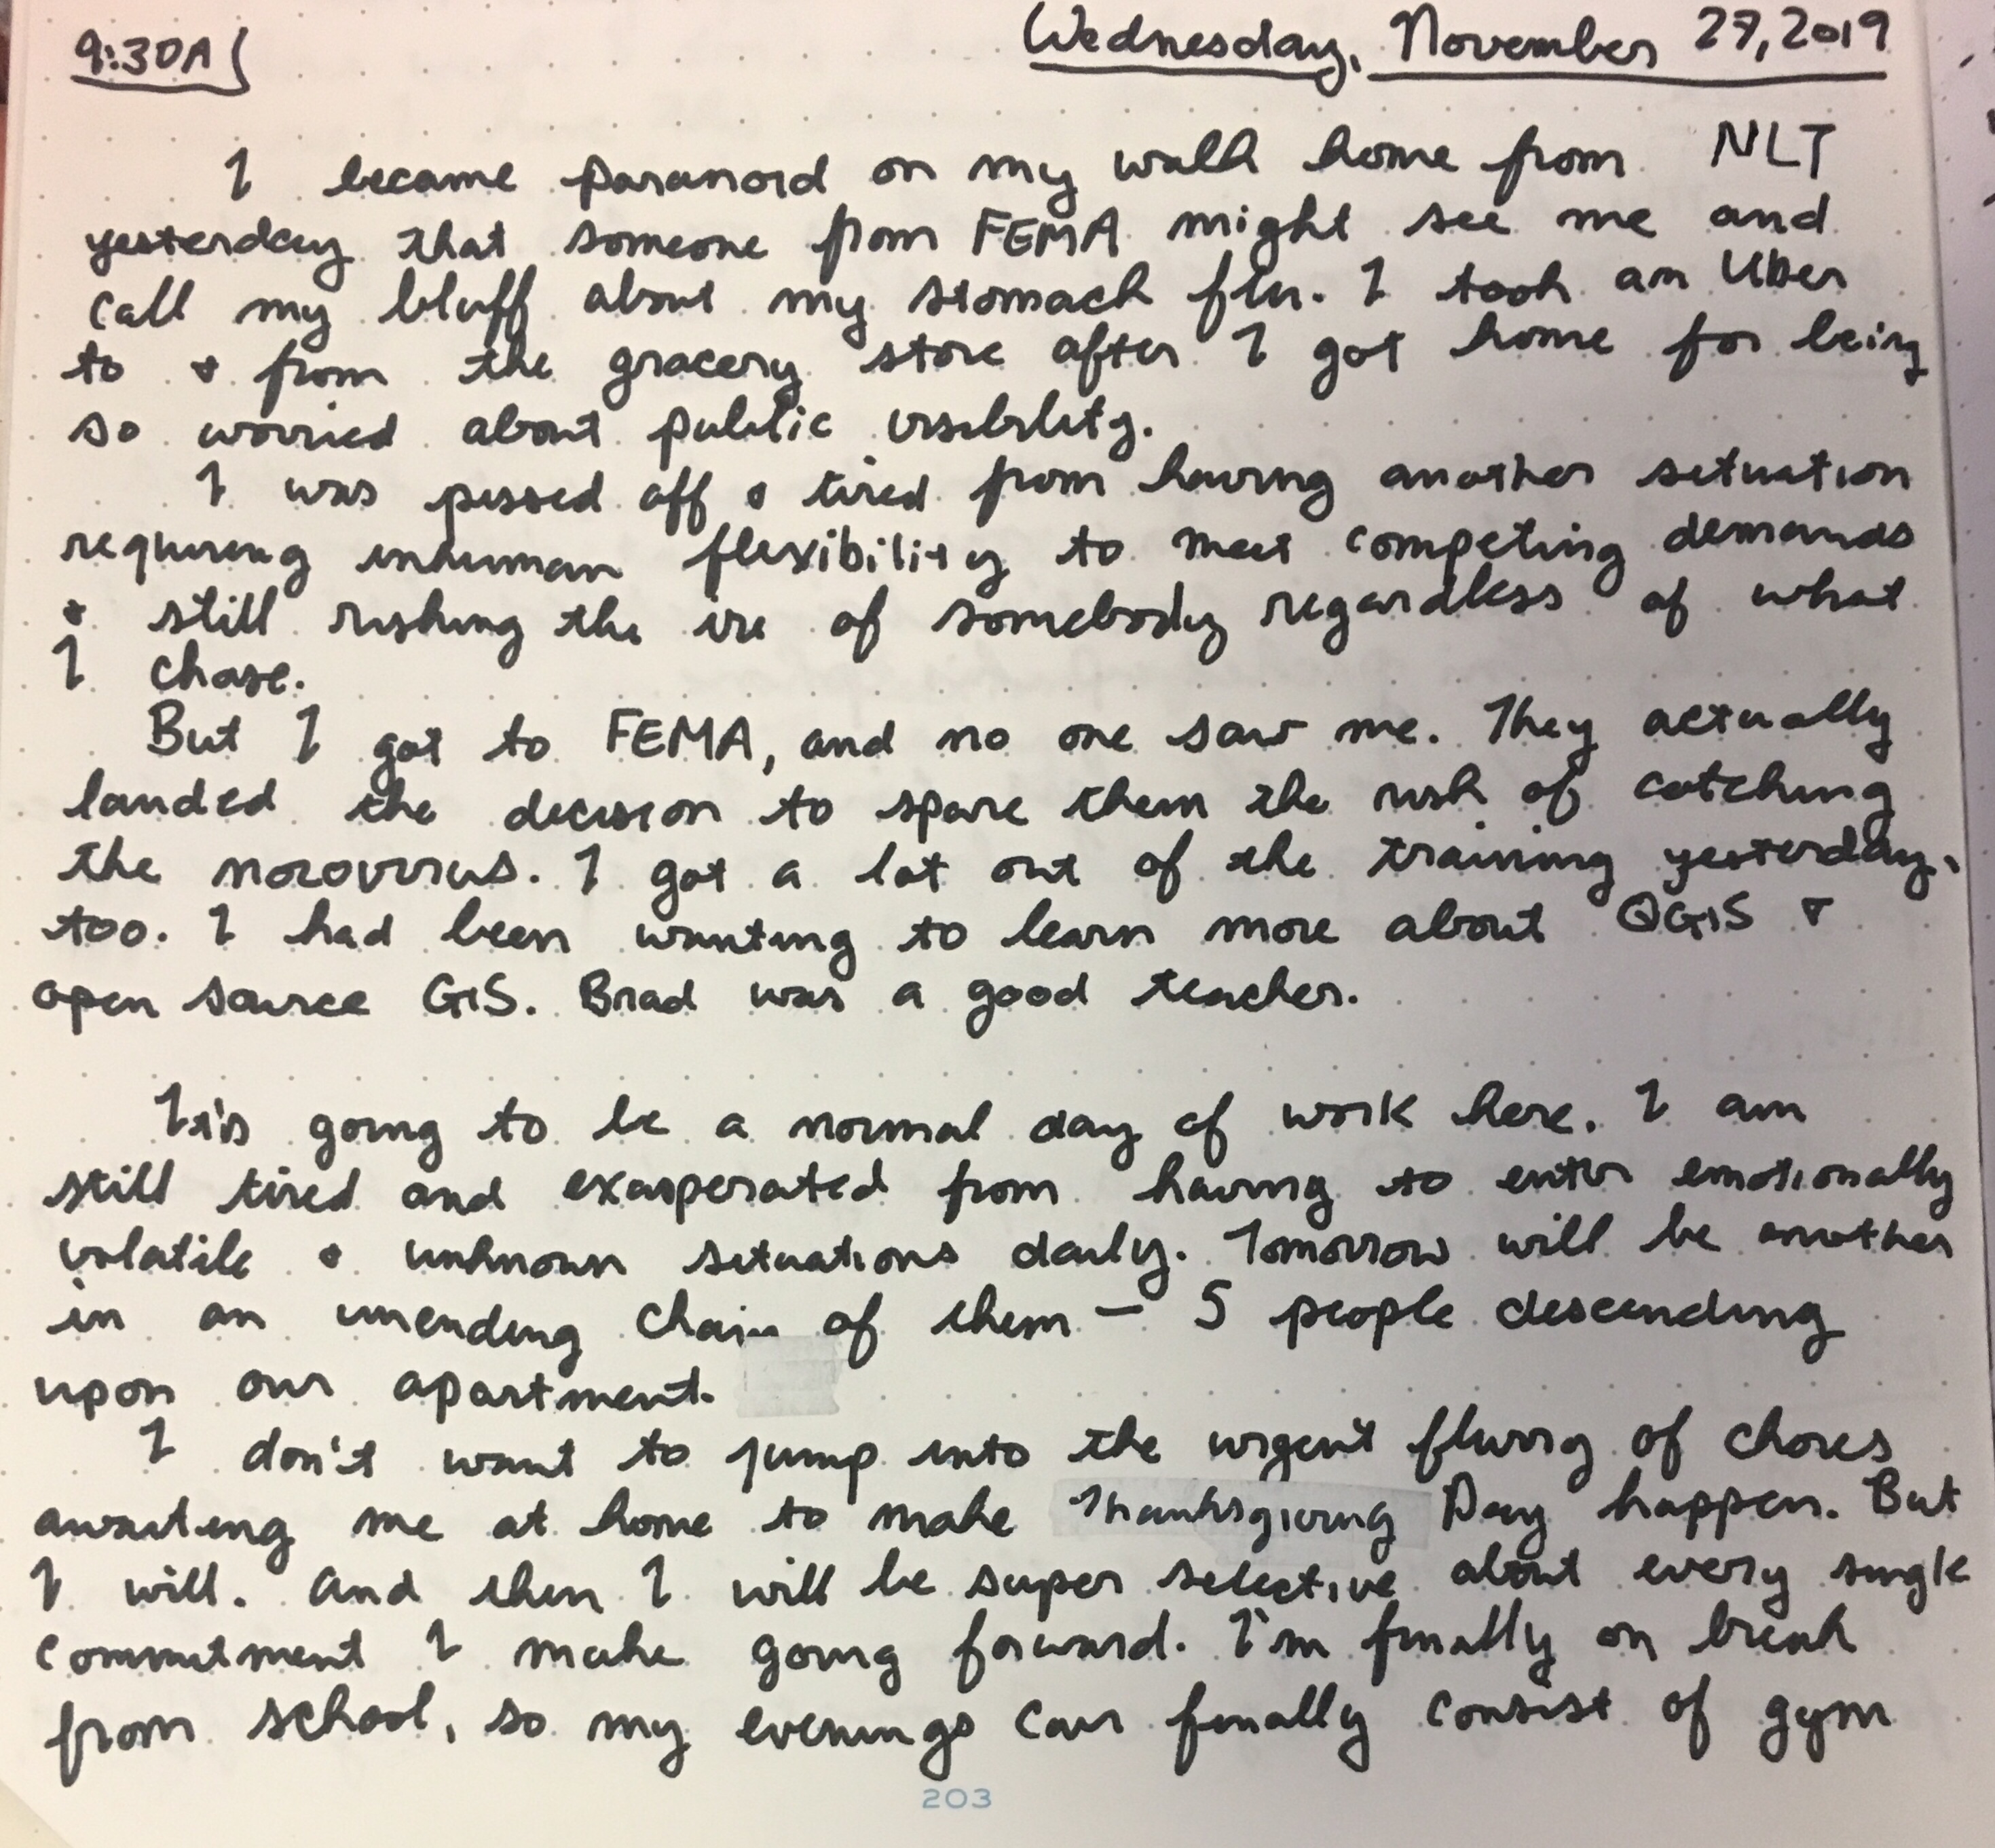 9:30A
Wednesday, November 27, 2019
I became paranoid on my walk home from NLT
yesterday that someone from FEMA might see me and
call my bluff about my stomach flu. I took an Uber
to + from the grocery store after I got home for being
so worried about public visibility.
I was pissed off + tired from having another situation
requiring inhuman flexibility to meet competing demands
+ still risking the ire of somebody regardless of what
I chose.
But I got to FEMA, and no one saw me. They actually
lauded the decision to spare them the risk of catching
the norovirus. I got a lot out of the training yesterday,
too. I had been wanting to learn more about QGIS +
open source GIS. Brad was a good teacher.
It's going to be a normal day of work here. I am
still tired and exasperated from having to enter emotionally
volatile + unknown situations daily. Tomorrow will be another
in an unending chain of them - 5 people descending
upon our apartment.
I don't want to jump into the urgent flurry of chores
awaiting me at home to make Thanksgiving Day happen. But
I will. And then I will be super selective about every single
commitment I make going forward. I'm finally on break
from school, so my evenings can finally consist of gym
203